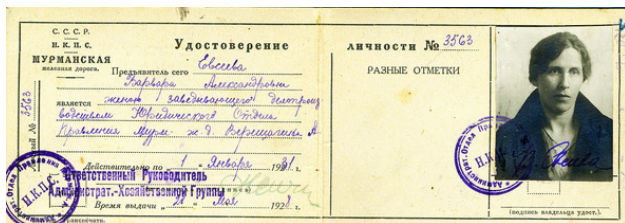 С. С. С. Р.
Н. К. П. С.
МУРМАНСКАЯ
железная дорога.
Удостоверение
Предъявитель сего Евсеева
Варвара Александровна
является женой заведывающего делопроиз
водством Юридического Отдела
Правления Мурм. ж. д. Верещагина А.
№ 3563
Действительно по "1" Января 1931 г.
Ответственный Руководитель
Администрат.-Хозяйственной Группы
Время выдачи " Мая 1928 г.
Н.К.П.С.
личности № 3563
РАЗНЫЕ ОТМЕТКИ
Н.К.П.С.
(подпись владельца удост.).